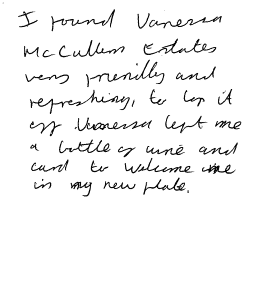 I found Vanessa
McCullum Estates
very friendly and
refreshing, to top it
off Vanessa left me
a bottle of wine and
card to welcome me
in my new place.